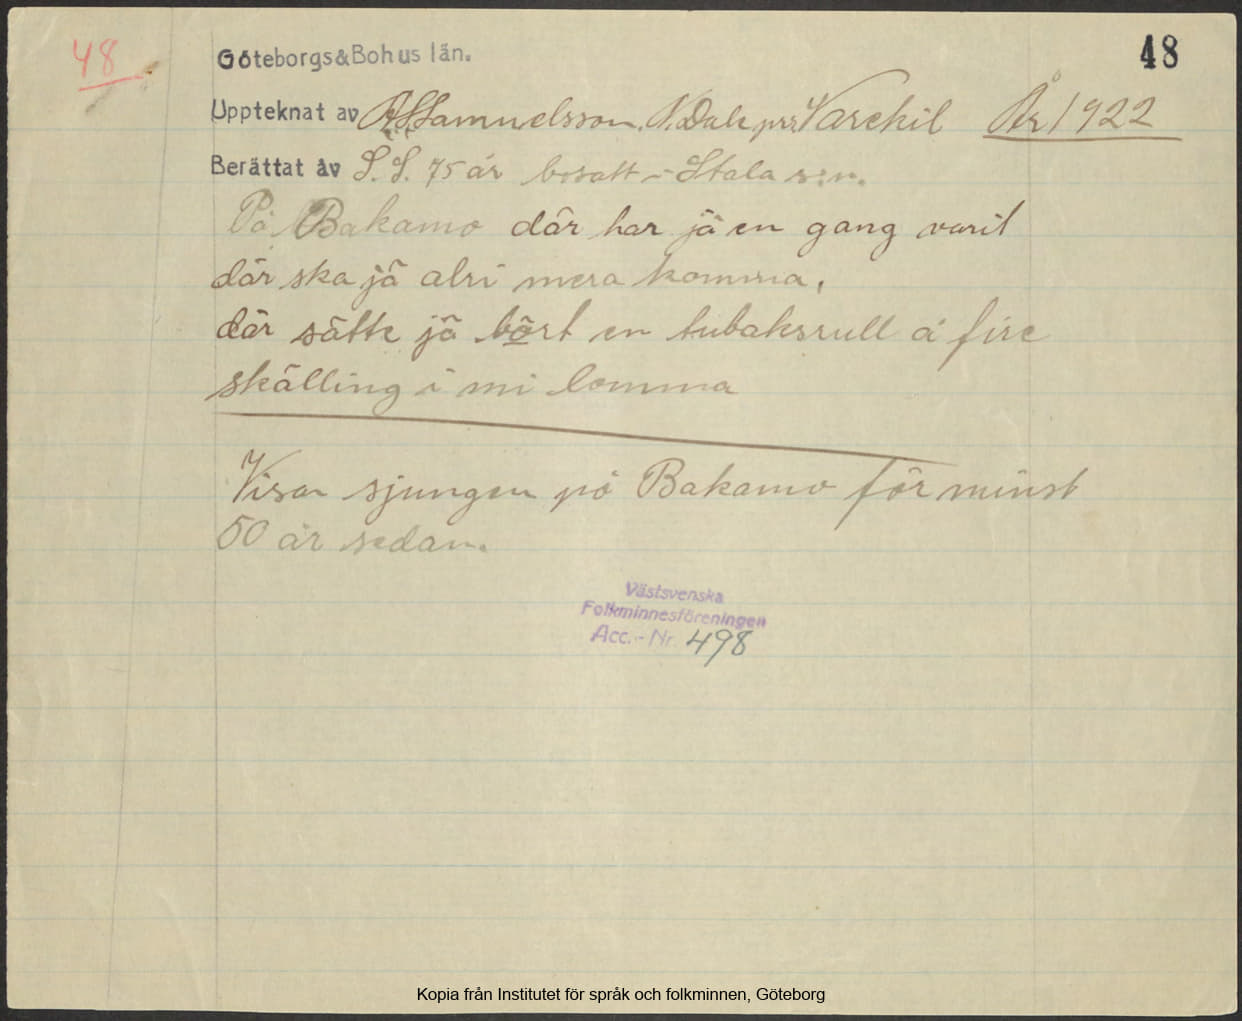 48
48
Göteborgs&Bohus län.
Uppteknat av A.S.Samuelsson, N.Dale, per Varekil År 1922
Berättat av S.S. 75 år bosatt i Stala s:n.
På Bakamo där har jä en gang varit
där ska jä alri mera komma,
där sätte jä bört en tubaksrull å fire
skälling i mi lomma
Visan sjungen på Bakamo för minst
50 år sedan.
Västsvenska
Folkminnesföreningen
Acc.-Nr. 498
Kopia från Institutet för språk och folkminnen, Göteborg